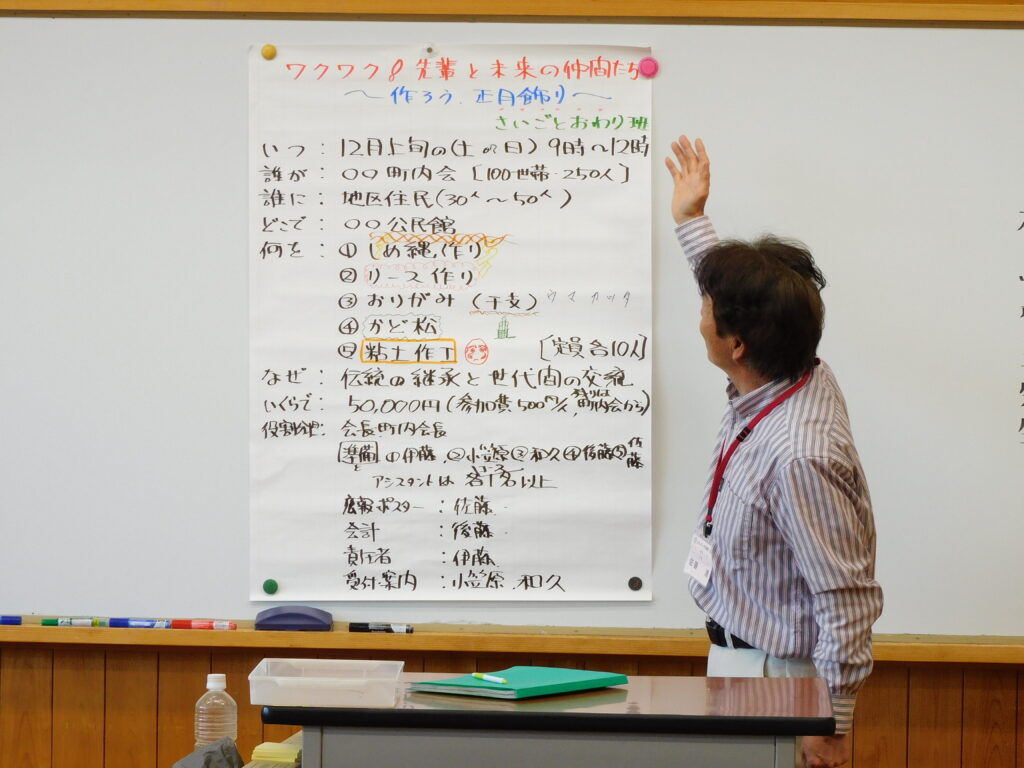 ワクワク8先輩と未来の仲間たち
～作ろう、正月飾り～
さいごとおわり班
いつ：12月上旬の(土or日) 9時～12時
誰が：○○町内会 [100世帯・250人]
誰に：地区住民(30人～50人)
どこで：○○公民館
何を：①しめ縄作り
②リース作り
③おりがみ (干支)
④かど松
⑤粘土作丁 [定員各10人]
なぜ：伝統の継承と世代間の交流
いくらで：50,000円 (参加費500円/人 残りは町内会から)
役割分担：会長町内会長
準備 ①伊藤、②小笠原③和久④後藤⑤佐藤
アシスタントは各1名以上
広報ポスター：佐藤
会計：後藤
責任者：伊藤
受付案内：小笠原、和久